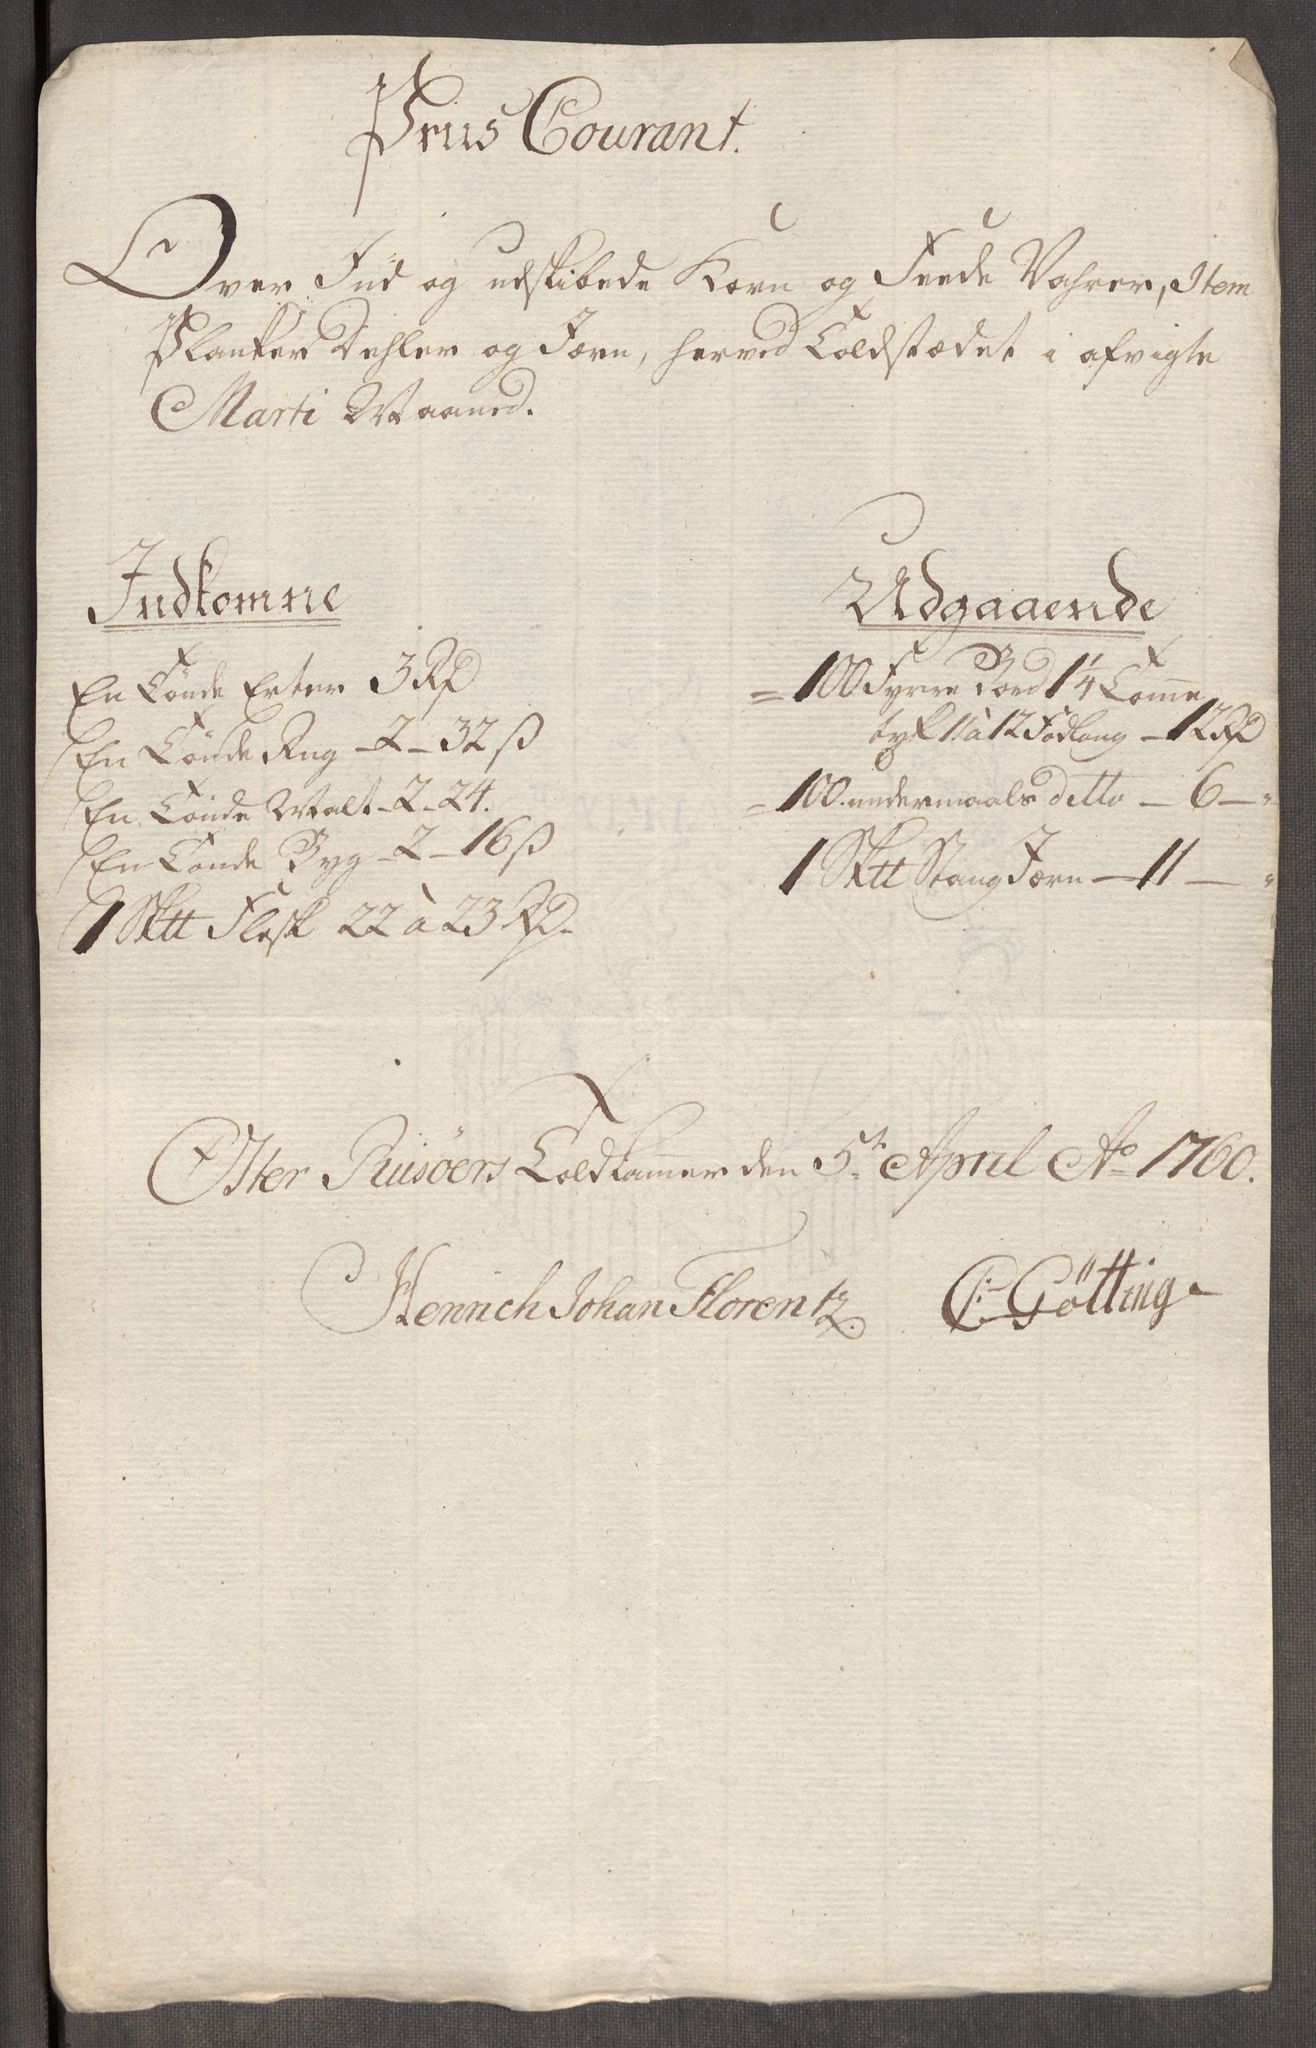 Priis Courant.
Over Ind og udskibede Korn og Feede Vahrer, Item
Planker Dehler og Jærn, herved Toldstædet i afvigte
Marti Maaned.
Indkomne
En Tønde Erter 3 Rd
En Tønde Rug - 2 - 32 ß
En Tønde Malt - 2 - 24.
En Tønde Byg - 2 - 16 ß
1 Sktt Flesk 22 à 23 Rd.
Udgaaende
= 100 Fyrre Bord 1 1/4 Tomme
tyk 11 à 12 Fod lang - 12 Rd
= 100. undermaals ditto - 6 - "
1 Sktt Stang Jærn - 11 - "
Øster Riisöers Toldkammer den 5te April Ao 1760.
Henrich Johan Florentz. C: Götting